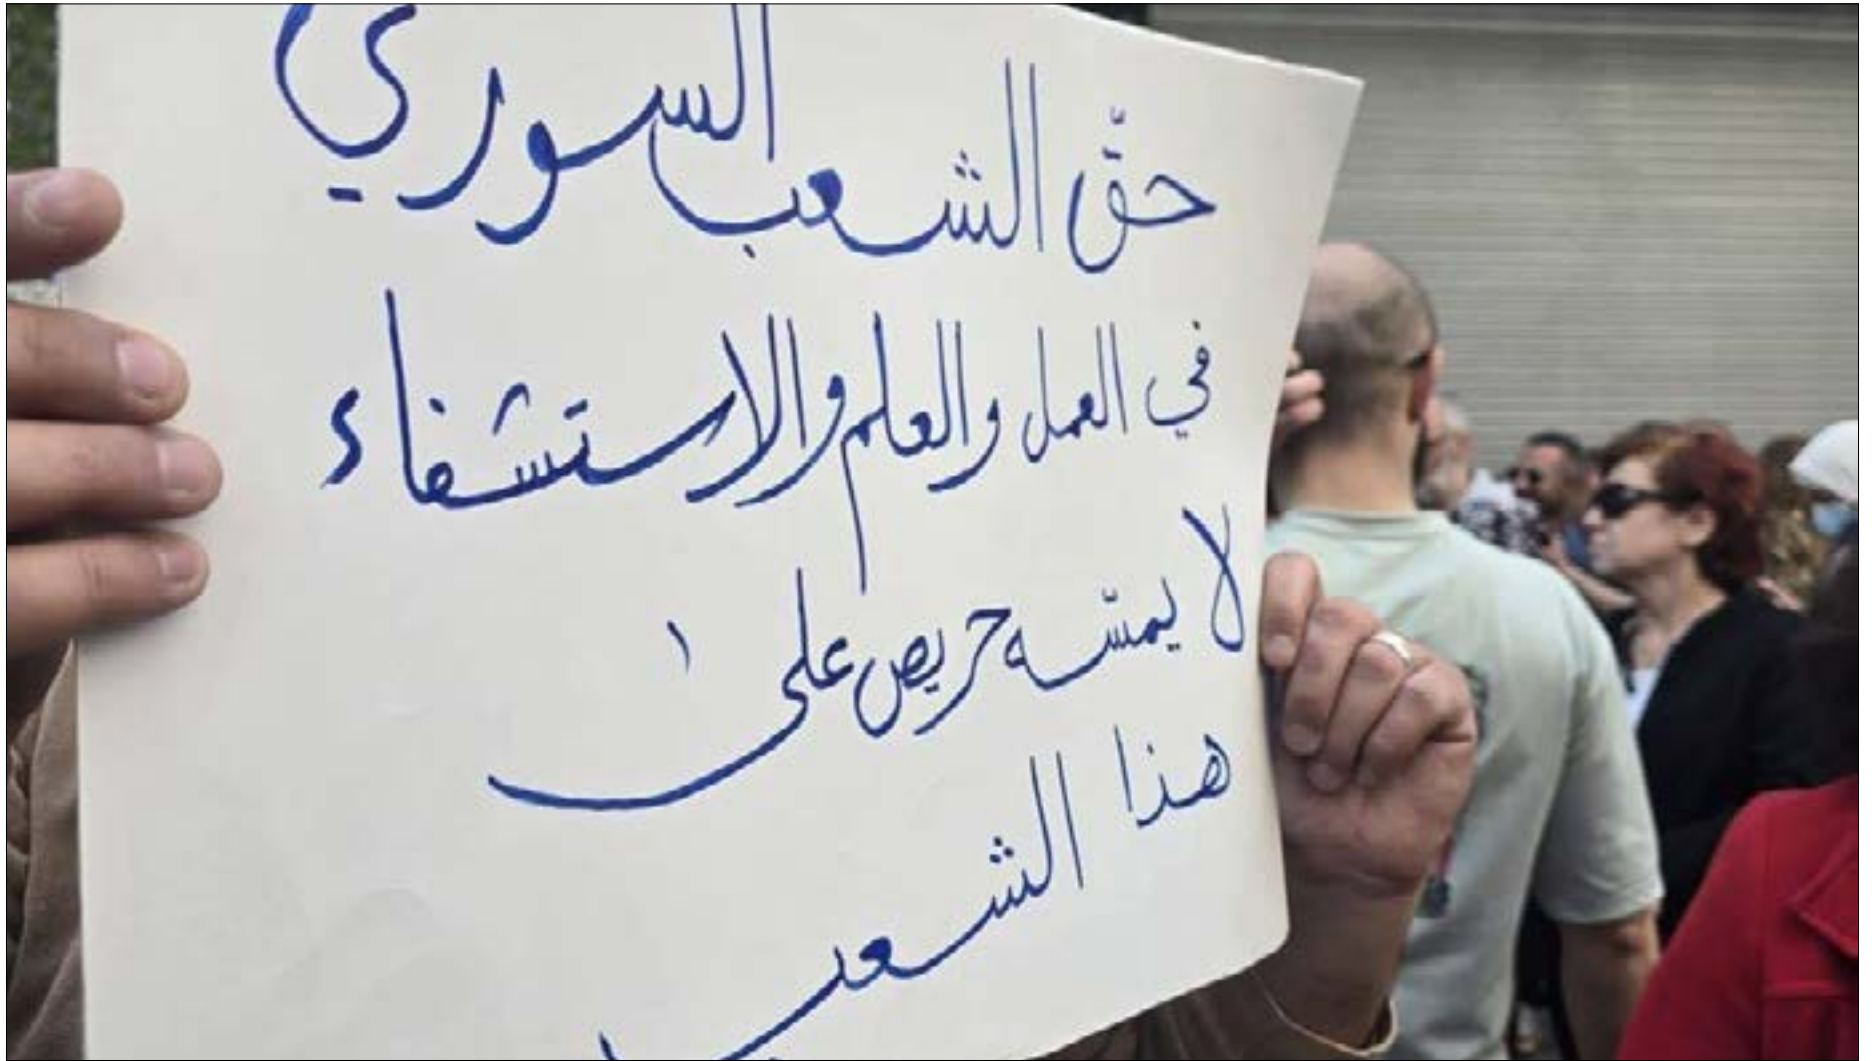 حقّ الشعب السوري
في العمل والعلم والاستشفاء
لا يمسّه حريص على
هذا الشعب